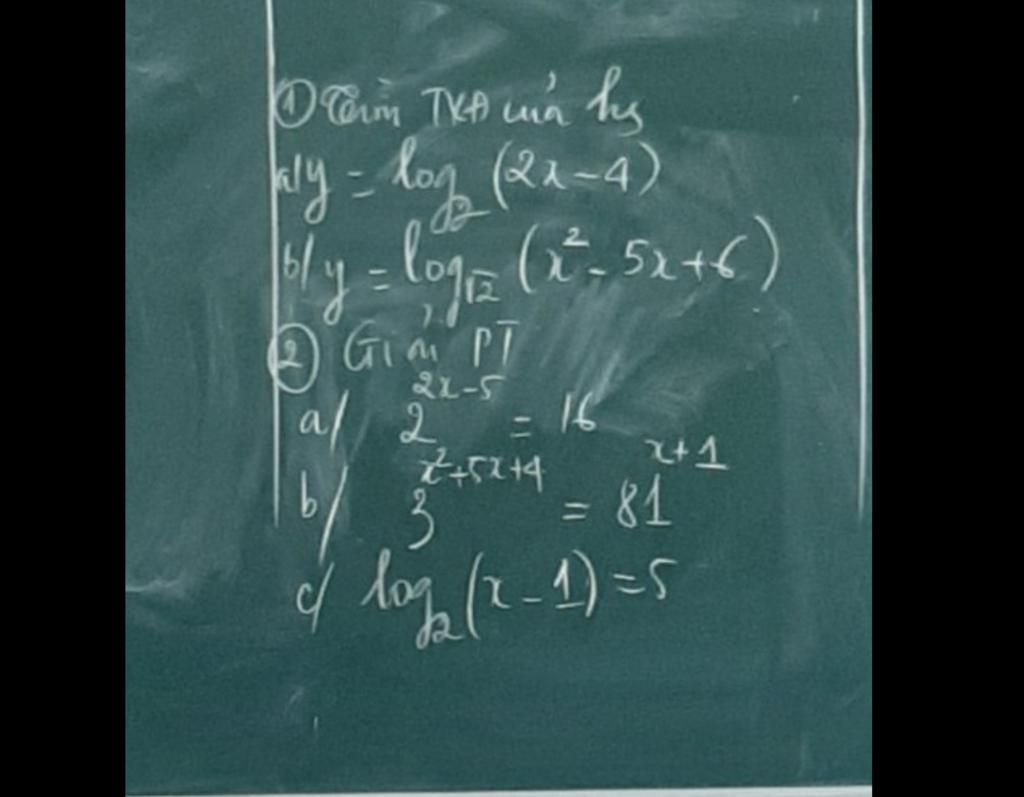 ① Tìm TXĐ của hs
a/ y = log₂ (2x-4)
b/ y = log_√2 (x² - 5x+6)
② Giải PT
a/ 2^(2x-5) = 16
b/ 3^(x²+5x+4) = 81^(x+1)
c/ log₂ (x-1) = 5